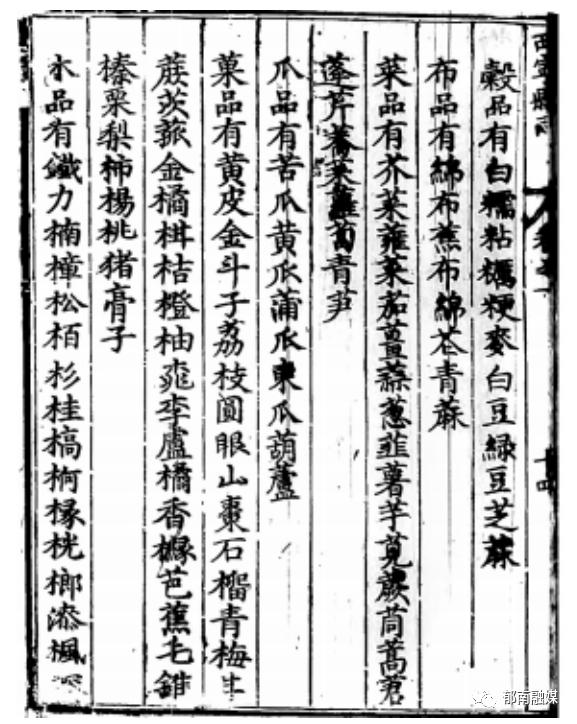 西寧縣志
榖品有白糯粘糲粳麥白豆綠豆芝蔴
布品有綿布蕉布綿花青蔴
菜品有芥菜蕹菜茄薑蒜葱韭薯芋莧蕨茼蒿
芹青笋
瓜品有苦瓜黄瓜蒲瓜東瓜葫蘆
菓品有黄皮金斗子荔枝圓眼山棗石榴青梅牛
蔗茨菰金橘柑桔橙柚桃李盧橘香櫞芭蕉毛錐
榛栗梨柿楊桃猪膏子
木品有鐵力楠樟松栢杉桂槁柯橡桄榔漆楓
郁南融媒